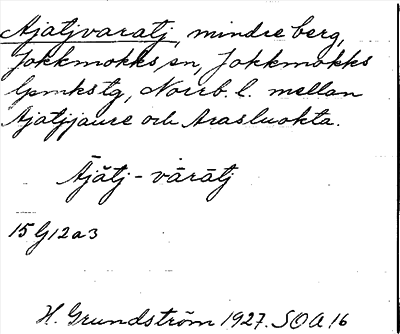 Ajatjvaratj, mindre berg,
Jokkmokks sn, Jokkmokks
lpmkstg, Norrb. l. mellan
Ajatjjaure och Arasluokta.
Ājătj - vārātj
15 G 12 a 3
H. Grundström 1927. SOA 16